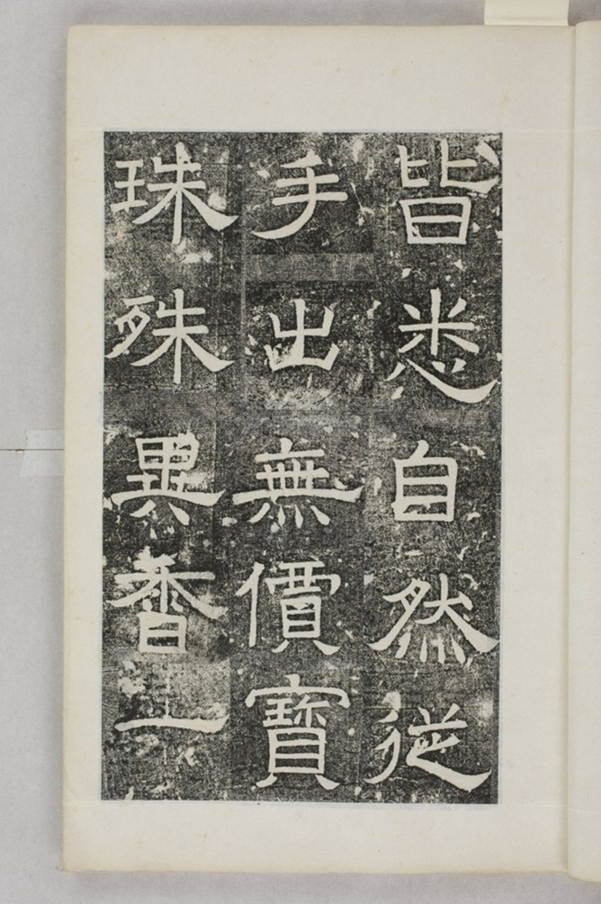 皆悉自然從
手出無價寶
珠殊異香上